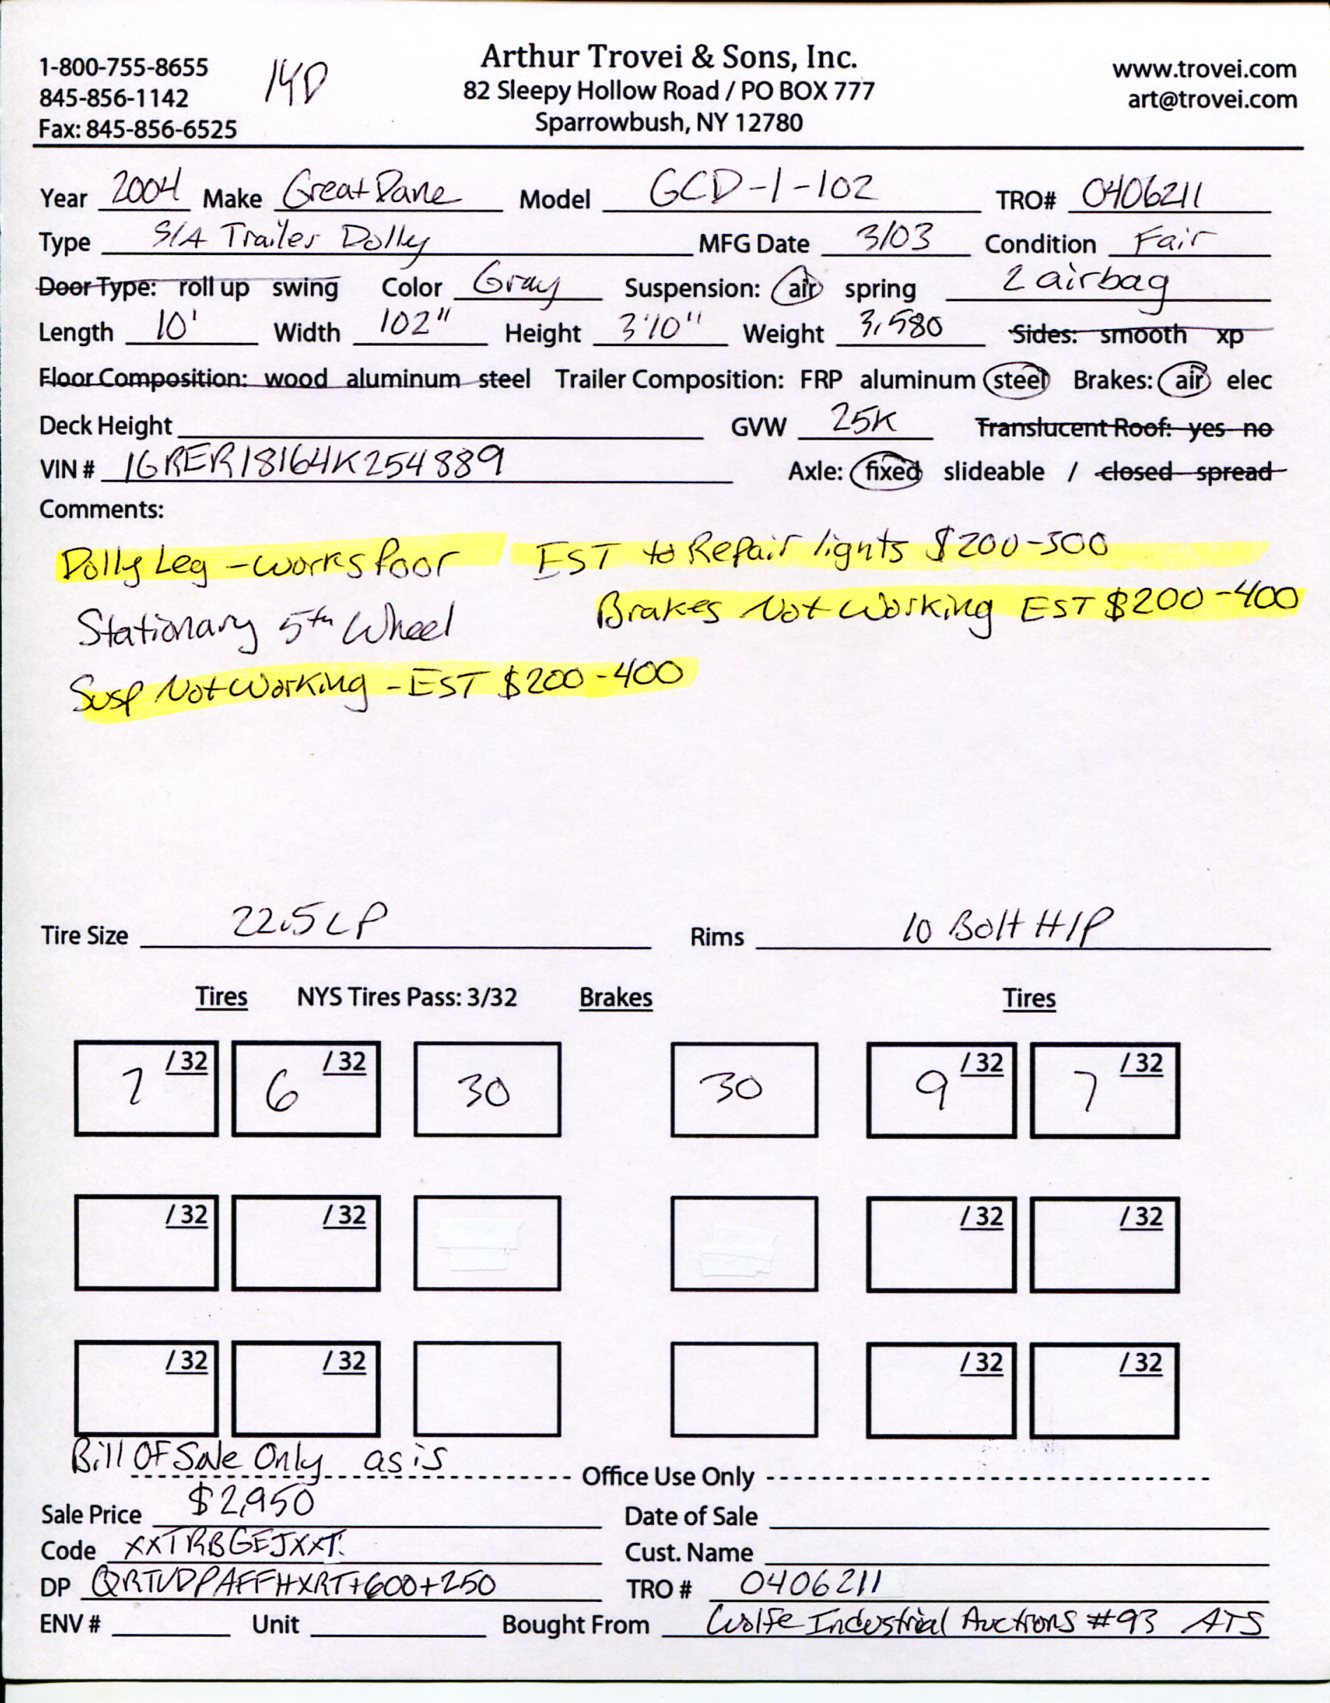 1-800-755-8655
845-856-1142
Fax: 845-856-6525
14D
Arthur Trovei & Sons, Inc.
82 Sleepy Hollow Road / PO BOX 777
Sparrowbush, NY 12780
www.trovei.com
art@trovei.com
Year 2004 Make Great Dane Model GCD-1-102 TRO# 0406211
Type S/A Trailer Dolly MFG Date 3/03 Condition Fair
Door Type: roll up swing Color Gray Suspension: air spring 2 airbag
Length 10' Width 102" Height 3'10" Weight 3,580 Sides: smooth xp
Floor Composition: wood aluminum steel Trailer Composition: FRP aluminum steel Brakes: air elec
Deck Height GVW 25K Translucent Roof: yes no
VIN # 1GRER18164K254889 Axle: fixed slideable / closed spread
Comments:
Dolly Leg - works Poor EST to Repair lights $200-300
Stationary 5th Wheel Brakes Not Working EST $200-400
Susp Not Working - EST $200-400
Tire Size 22.5 LP Rims 10 Bolt H/P
Tires NYS Tires Pass: 3/32 Brakes Tires
7 /32 6 /32 30 30 9 /32 7 /32
/32 /32 /32 /32
/32 /32 /32 /32
Bill Of Sale Only as is Office Use Only
Sale Price $2,950 Date of Sale
Code XXTRBGEJXXT. Cust. Name
DP QRTUDPAFFHXRT+600+250 TRO # 0406211
ENV # Unit Bought From Wolfe Industrial Auctions #93 ATS